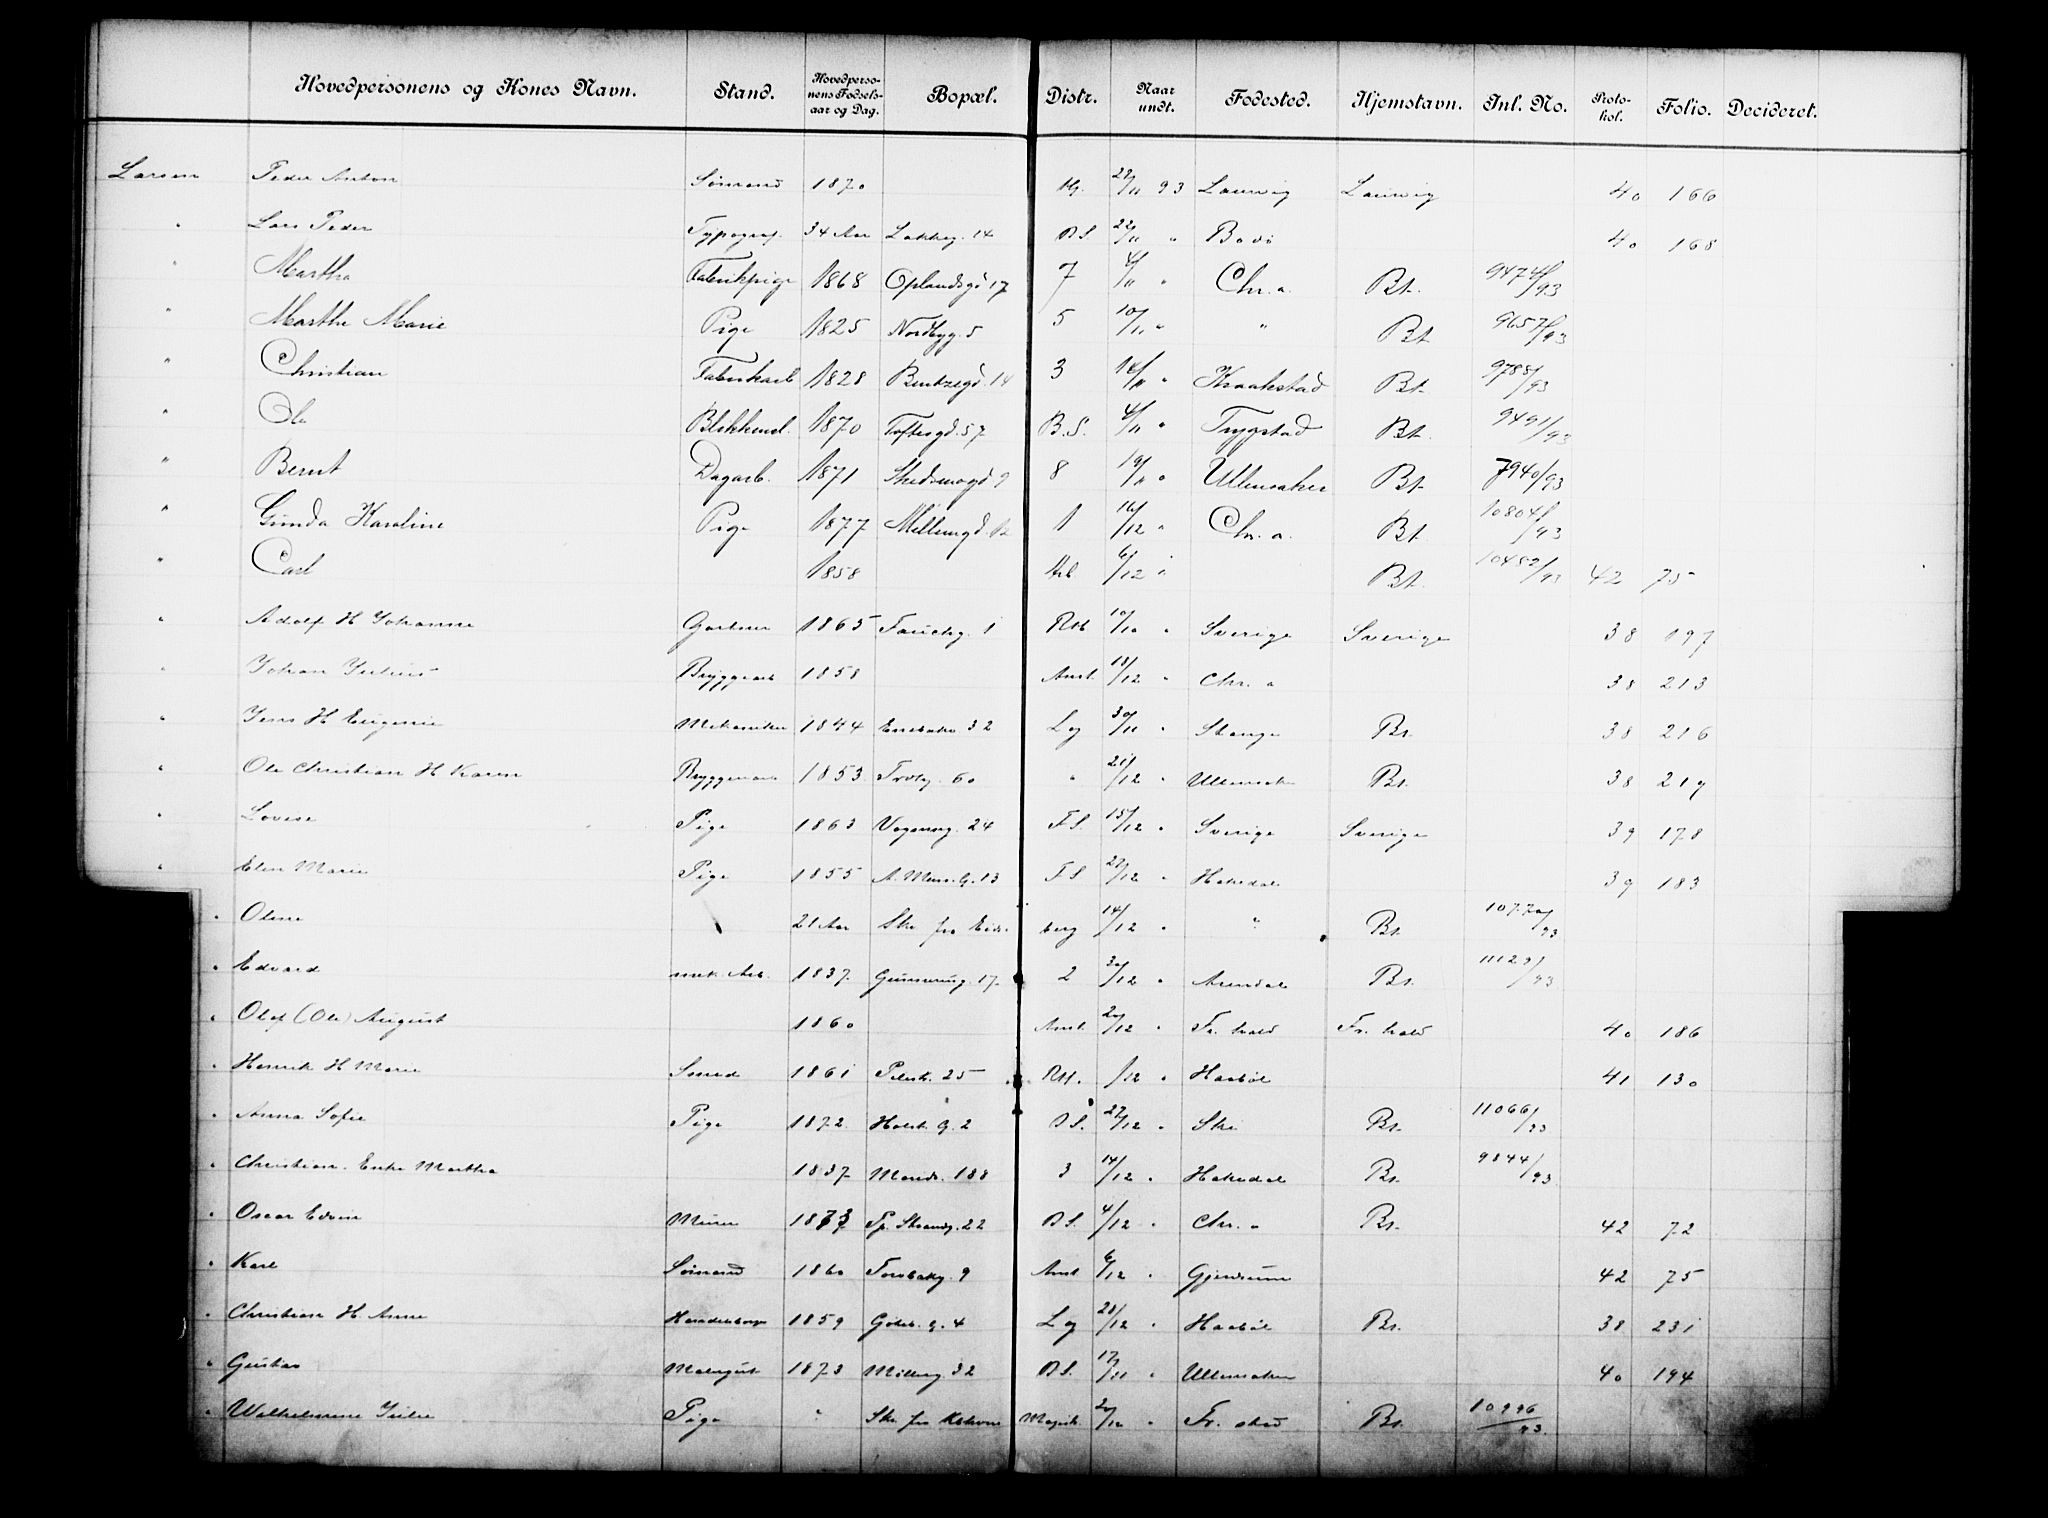 Hovedpersonens og Kones Navn. Stand. Hovedpersonens Fødselsaar og Dag. Bopæl. Distr. Naar undt. Fødested. Hjemstavn. Inl. No. Protokol. Folio. Decideret.
Larsen Peder Anton Sømand 1870 22/11 93 Laurvig Laurvig 40 166
" Lars Peder Typograf. 34 Aar Lakkeg. 14 B.S. 22/11 " Bodø 40 168
" Martha Fabrikpige 1868 Oplandsgd. 17 7 4/11 " Chr.a. Bt. 9474/93
" Marthe Marie Pige 1825 Nordbyg. 5 5 10/11 " " Bt. 9657/93
" Christian Fabrikarb 1828 Bentzegd. 14 3 14/11 " Kraakstad Bt. 9788/93
" Ole Blikkensl. 1870 Toftesgd. 57 B.S. 4/11 " Trygstad Bt. 9491/93
" Bernt Dagarb. 1871 Skedsmogd 9 8 19/11 " Ullensaker Bt. 7940/93
" Gunda Karoline Pige 1877 Møllergd. 12 1 16/12 " Chr.a. Bt. 10804/93
" Carl 1858 6/12 " Bt. 10452/93 42 75
" Adolf H Johanne Gartner 1865 1 10/10 " Sverige Sverige 38 197
" Johan Julius Bryggearb 1858 Anst. 18/12 " Chr. a 38 213
" Jens H Eugenie Mekaniker 1844 Enebakv 32 Lg 30/11 " Stange Bt. 38 216
" Ole Christian H Karen Bryggearb 1853 60 " 21/12 " Ullensaker Bt. 38 219
" Lovise Pige 1863 Vognmg. 24 F.S. 15/12 " Sverige Sverige 39 178
" Elen Marie Pige 1855 A. Mun. G. 13 F.S 22/12 " Hakedal 39 183
" Oline 21 Aar Skr fra Eidsberg 14/12 " " Bt. 10770/93
" Edvard mek. Arb. 1837 Grünerg. 17 2 30/12 " Arendal Bt. 11129/93
" Olaf (Ole) August 1860 Anst. 20/12 " Fr. hald Fr. hald 40 186
" Henrik H Marie Smed 1861 Pilest. 25 RH. /12 " Haabøl 41 130
" Anna Sofie Pige 1872 Holst. G. 2 B.S. 27/12 " Ski Bt. 11066/93
" Christian. Enke Martha 1837 Marid. 188 3 14/12 " Hakedal Bt. 9844/93
" Oscar Edvin Murer 1873 Strandg. 22 B.S. 4/12 " Chr. a Bt. 42 72
" Karl Sømand 1860 9 Anst 6/12 " Gjerdrum 42 75
" Christian H. Anne 1859 Göteb. g. 4 Lg 28/12 " Haabøl Bt. 38 231
" Gustav Malersv. 1873 Møllerg 32 B.S. 17/11 " Ullensaker 40 194
" Wilhelmine Julie Pige " Skr. fra Magist. 20/12 " Fr. stad Bt. 10996/93